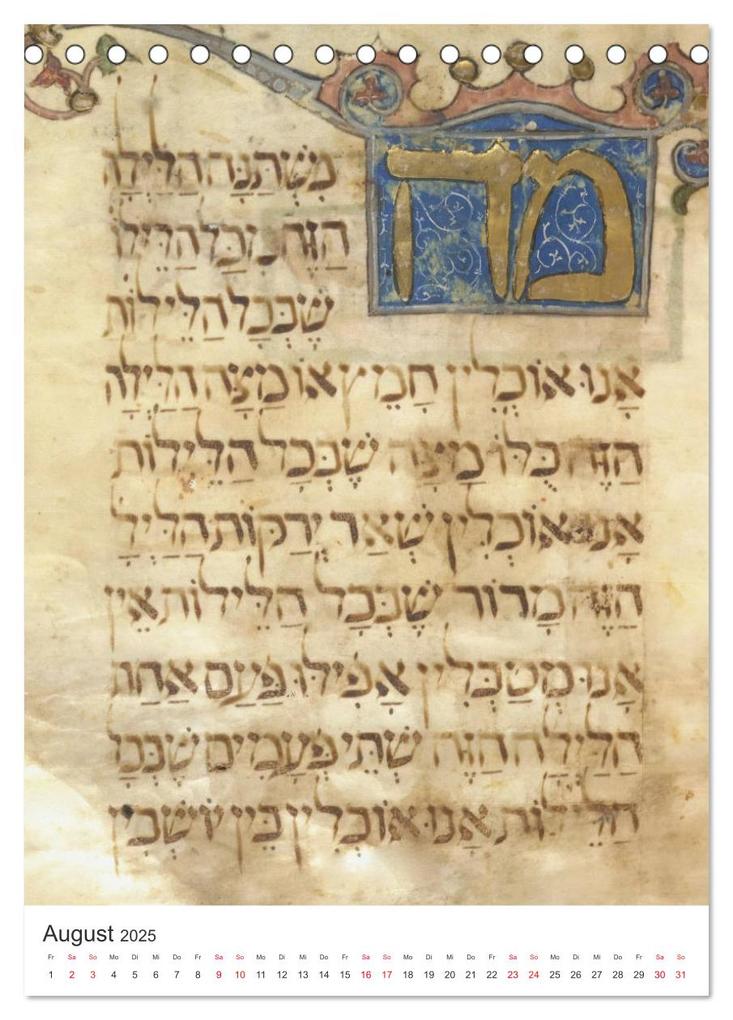 מה
מִשְׁתַּנָּה הַלַּיְלָה
הַזֶּה מִכָּל הַלֵּילוֹ
שֶׁבְּכָל הַלֵּילוֹת
אָנוּ אוֹכְלִין חָמֵץ אוֹ מַצָּה הַלַּיְלָה
הַזֶּה כֻּלּוֹ מַצָּה שֶׁבְּכָל הַלֵּילוֹת
אָנוּ אוֹכְלִין שְׁאַר יְרָקוֹת הַלַּיְלָ
הַזֶּה מָרוֹר שֶׁבְּכָל הַלֵּילוֹת אֵין
אָנוּ מְטַבְּלִין אֲפִילוּ פַּעַם אַחַת
הַלַּיְלָה הַזֶּה שְׁתֵּי פְּעָמִים שֶׁבְּכָ
הַלֵּילוֹת אָנוּ אוֹכְלִין בֵּין יוֹשְׁבִין
August 2025
Fr Sa So Mo Di Mi Do Fr Sa So Mo Di Mi Do Fr Sa So Mo Di Mi Do Fr Sa So Mo Di Mi Do Fr Sa So
1 2 3 4 5 6 7 8 9 10 11 12 13 14 15 16 17 18 19 20 21 22 23 24 25 26 27 28 29 30 31